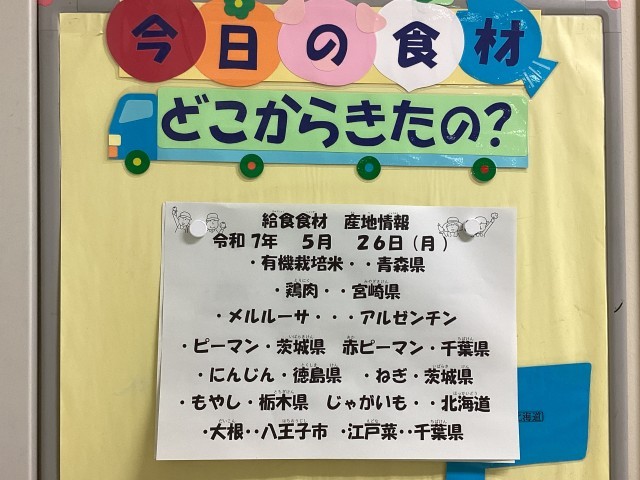 今日の食材
どこからきたの?
給食食材 産地情報
令和7年 5月 26日(月)
・有機栽培米・・青森県
・鶏肉・・宮崎県
・メルルーサ・・・アルゼンチン
・ピーマン・茨城県 赤ピーマン・千葉県
・にんじん・徳島県 ・ねぎ・茨城県
・もやし・栃木県 じゃがいも・・北海道
・大根・・八王子市 ・江戸菜・・千葉県
北海道)